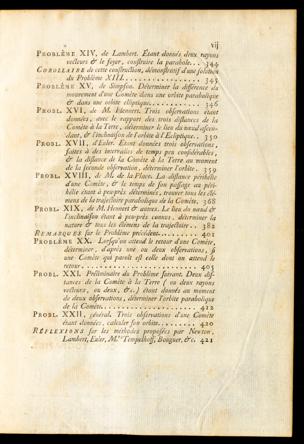 vij
PROBLÈME XIV, de Lambert. Étant donnés deux rayons
vecteurs & le foyer, construire la parabole... 344
COROLLAIRE de cette construction, démonstratif d'une solution
du Problème XIII................. 345
PROBLÈME XV, de Simpson. Déterminer la différence du
mouvement d'une Comète dans une orbite parabolique
& dans une orbite elliptique............ 346
PROBL. XVI, de M. Hennert. Trois observations étant
données, avec le rapport des trois distances de la
Comète à la Terre, déterminer le lieu du nœud ascen-
dant, & l'inclinaison de l'orbite à l'Écliptique.. 350
PROBL. XVII, d'Euler. Étant données trois observations,
faites à des intervalles de temps peu considérables,
& la distance de la Comète à la Terre au moment
de la seconde observation, déterminer l'orbite. 359
PROBL. XVIII, de M. de la Place. La distance périhélie
d'une Comète, & le temps de son passage au péri-
hélie étant à peu-près déterminés, trouver tous les élé-
mens de la trajectoire parabolique de la Comète. 368
PROBL. XIX, de M. Hennert & autres. Le lieu du nœud &
l'inclinaison étant à peu-près connus, déterminer la
nature & tous les élémens de la trajectoire.. 382
REMARQUES sur le Problème précédent......... 401
PROBLÈME XX. Lorsqu'on attend le retour d'une Comète,
déterminer, d'après une ou deux observations, si
une Comète qui paroît est celle dont on attend le
retour......................... 405
PROBL. XXI. Préliminaire du Problème suivant. Deux dis-
tances de la Comète à la Terre (ou deux rayons
vecteurs, ou deux, &c.) étant donnés au moment
de deux observations, déterminer l'orbite parabolique
de la Comète.................... 412
PROBL. XXII, général. Trois observations d'une Comète
étant données, calculer son orbite......... 420
RÉFLEXIONS sur les méthodes proposées par Newton,
Lambert, Euler, M.rs Tempelhoff, Bouguer, &c. 421